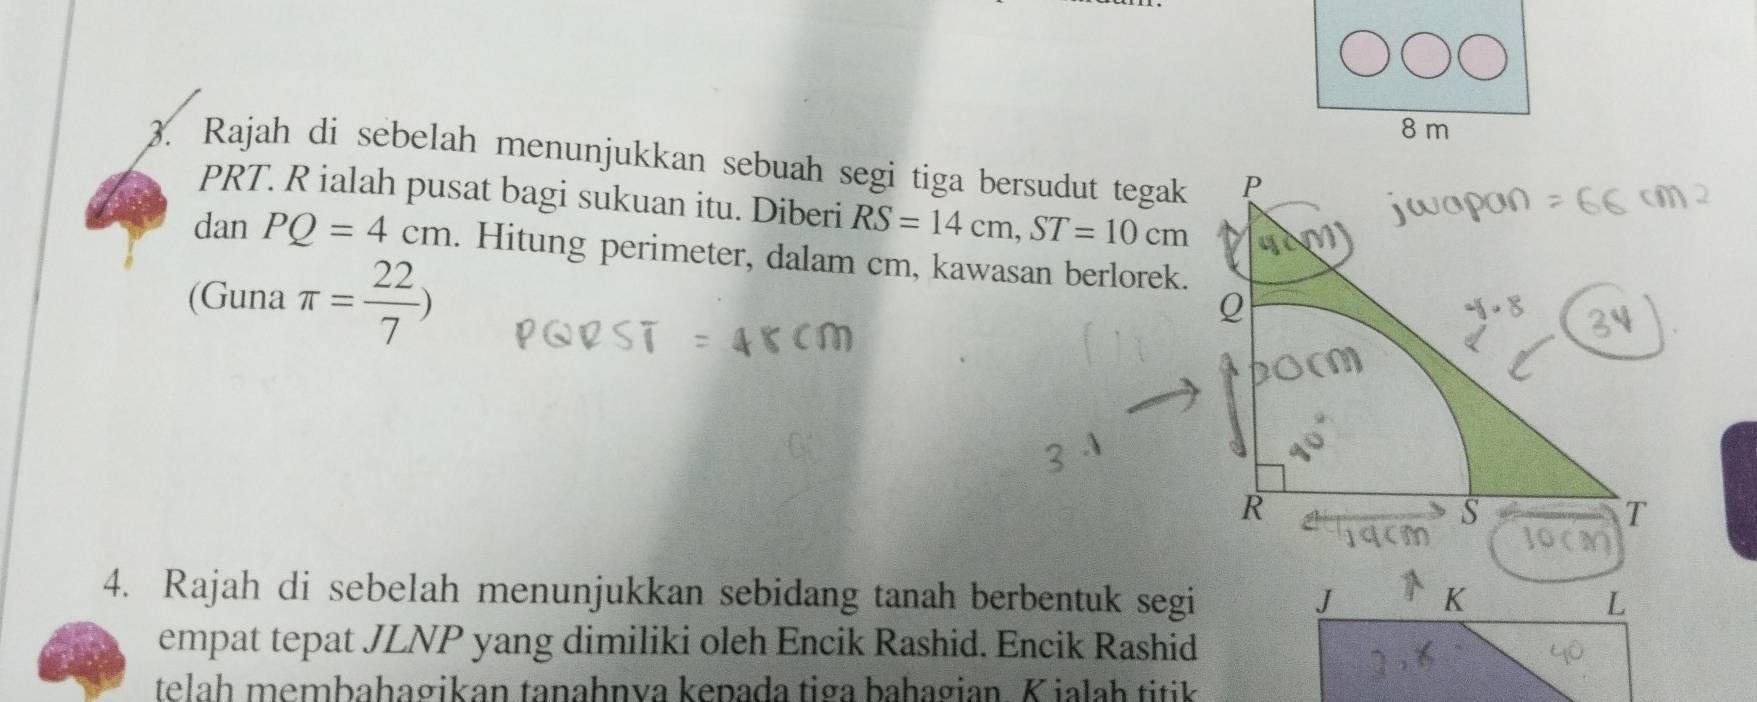 8 m
3. Rajah di sebelah menunjukkan sebuah segi tiga bersudut tegak
PRT. R ialah pusat bagi sukuan itu. Diberi RS = 14 cm, ST = 10 cm
dan PQ = 4 cm. Hitung perimeter, dalam cm, kawasan berlorek.
(Guna π = 22/7)
PQRST = 48 cm
jwapan = 66 cm2
P
4cm
Q
34
90°
3.1
R
S
T
14cm
10cm
4. Rajah di sebelah menunjukkan sebidang tanah berbentuk segi
empat tepat JLNP yang dimiliki oleh Encik Rashid. Encik Rashid
telah membahagikan tanahnya kepada tiga bahagian. K ialah titik
J K L
40